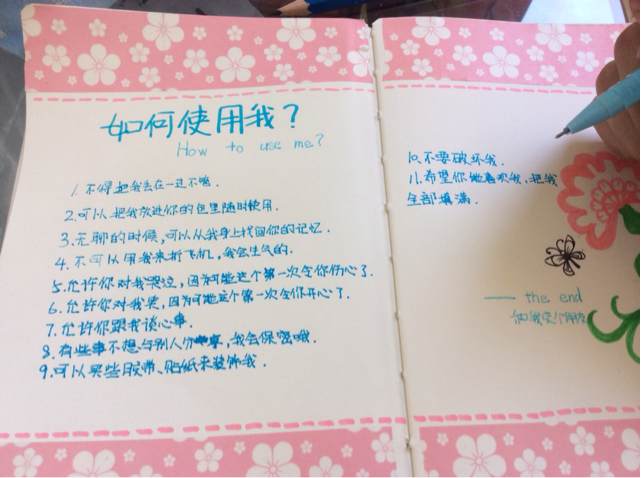 如何使用我？
How to use me?
1.不得把我丢在一边不嘞.
2.可以把我放进你的包里随时使用.
3.无聊的时候,可以从我身上找回你的记忆.
4.不可以用我来折飞机,我会生气的.
5.允许你对我哭泣,因为可能这个第一次令你伤心了.
6.允许你对我笑,因为可能这个第一次令你开心了.
7.允许你跟我谈心事.
8.有些事不想与别人分享,我会保密哦.
9.可以买些胶带、贴纸来装饰我.
10.不要破坏我.
11.希望你她喜欢我,把我
全部填满.
—— the end